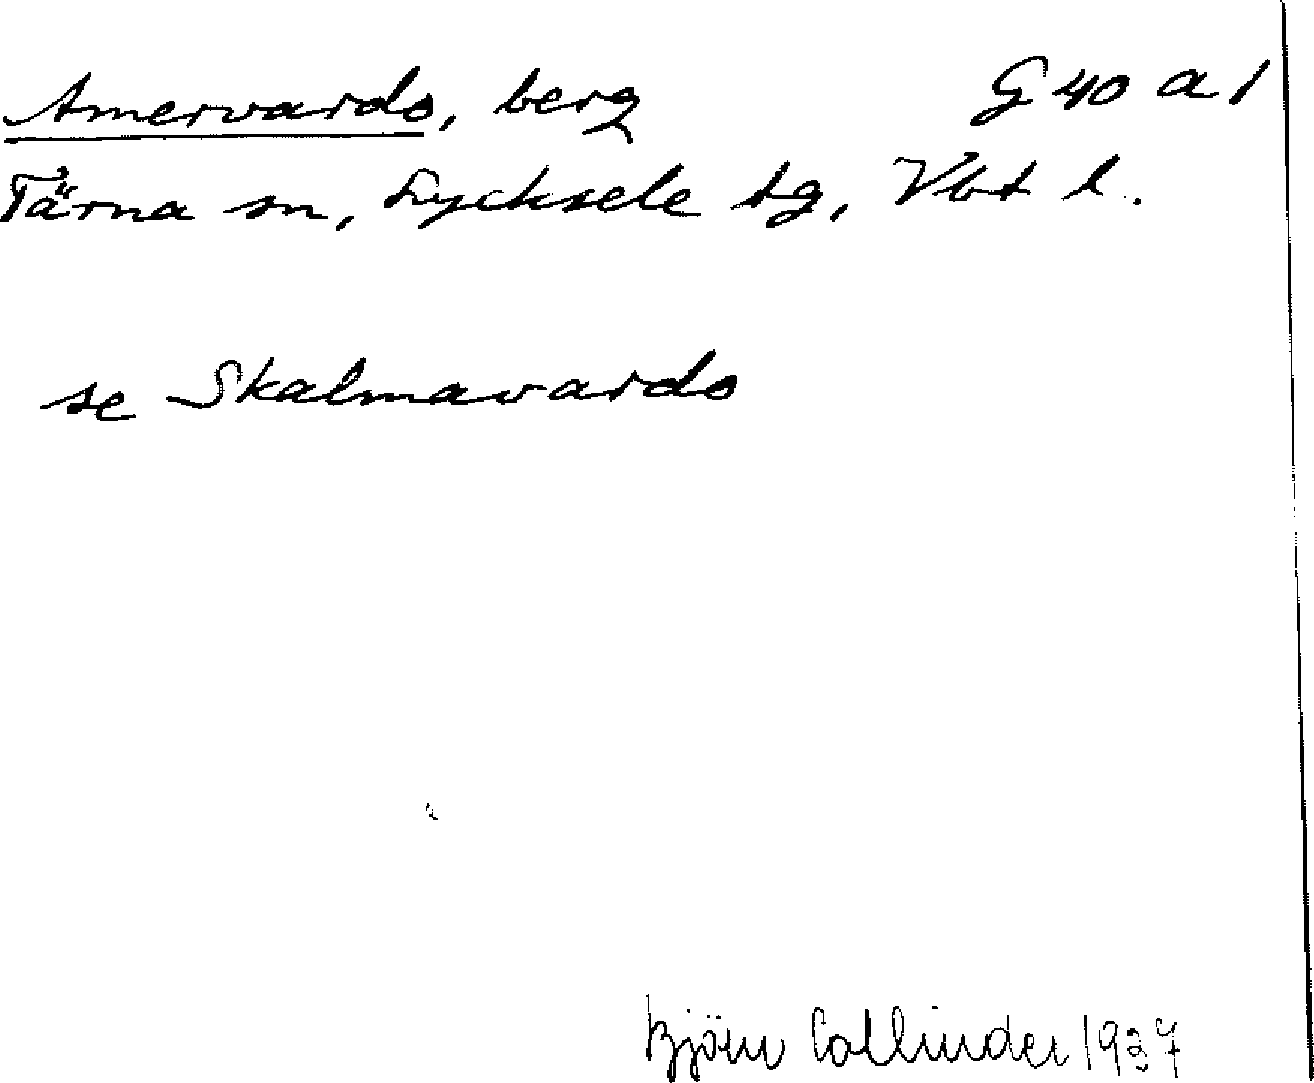 Amervardo, berg G 40 a 1
Tärna sn, Lycksele tg, Vbt l.
se Skalmavardo
Björn Collinder 1937